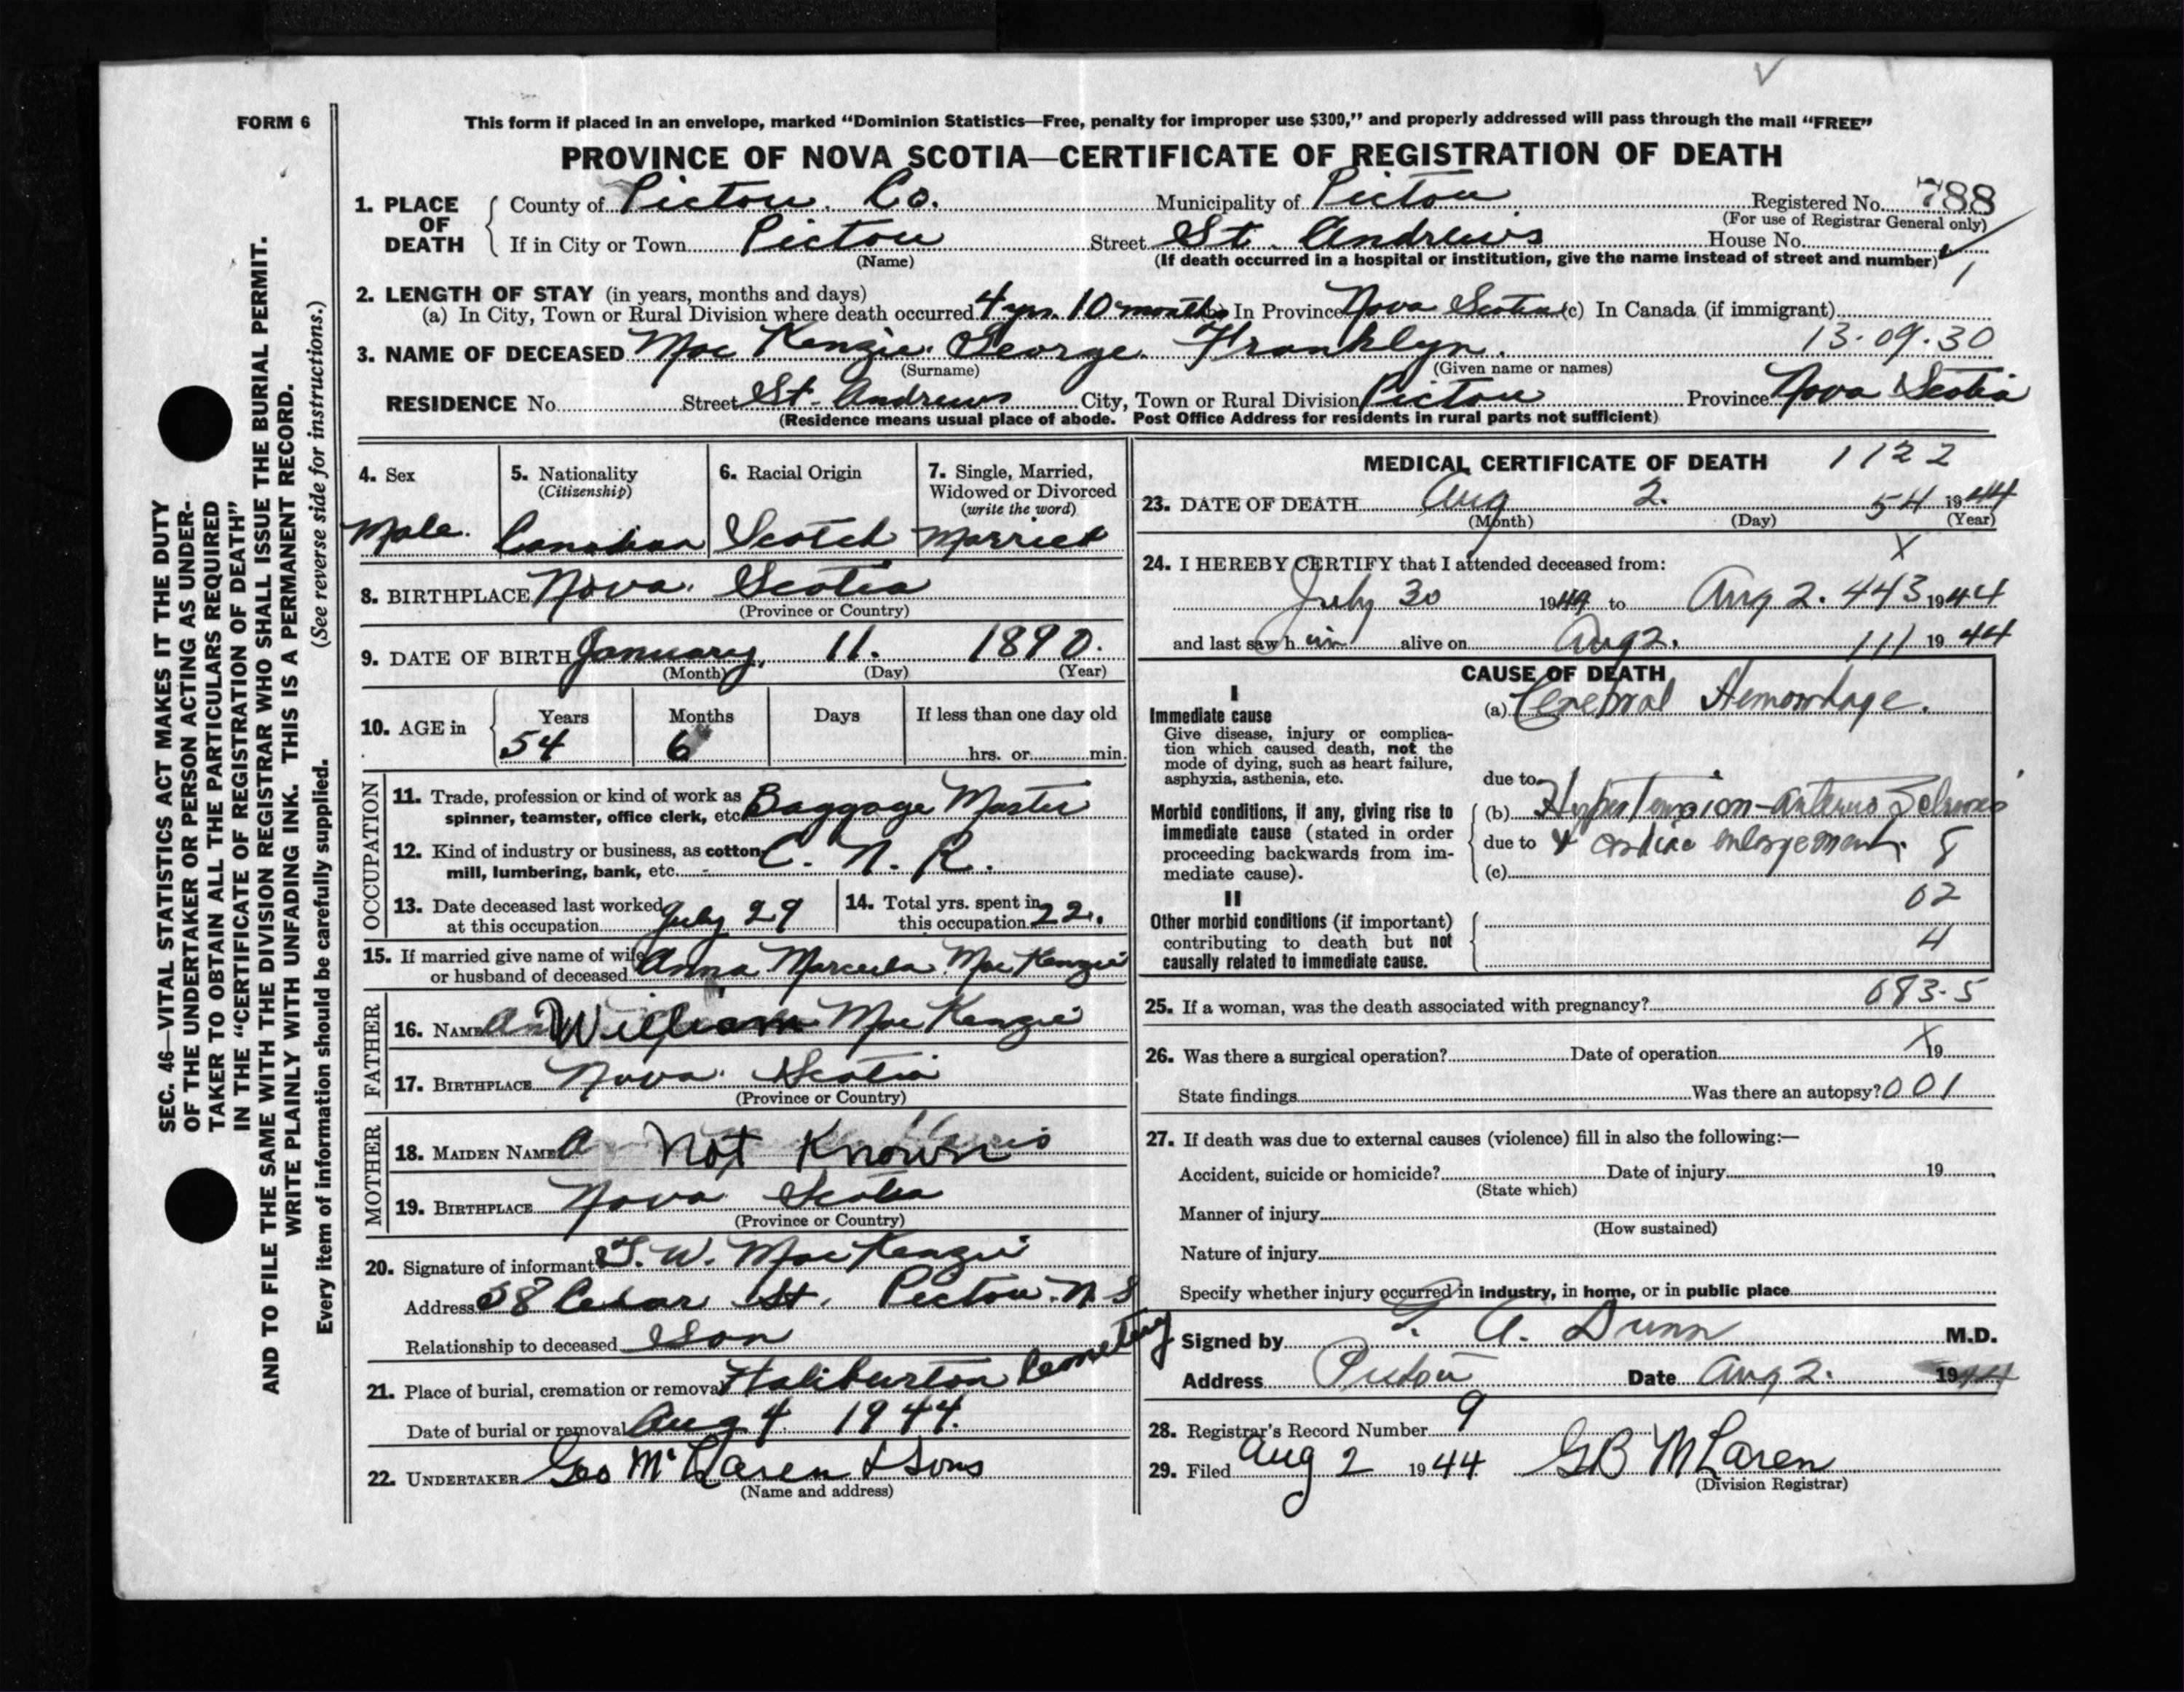 FORM 6
This form if placed in an envelope, marked “Dominion Statistics—Free, penalty for improper use $300,” and properly addressed will pass through the mail “FREE”
PROVINCE OF NOVA SCOTIA—CERTIFICATE OF REGISTRATION OF DEATH
1. PLACE OF DEATH
County of Pictou Co. Municipality of Pictou Registered No. 788
(For use of Registrar General only)
If in City or Town Pictou Street St. Andrews House No.
(Name) (If death occurred in a hospital or institution, give the name instead of street and number)
2. LENGTH OF STAY (in years, months and days)
(a) In City, Town or Rural Division where death occurred 4 yrs. 10 months In Province Nova Scotia (c) In Canada (if immigrant)
3. NAME OF DECEASED Mac Kenzie George Franklyn. 13.09.30
(Surname) (Given name or names)
RESIDENCE No. Street St. Andrews City, Town or Rural Division Pictou Province Nova Scotia
(Residence means usual place of abode. Post Office Address for residents in rural parts not sufficient)
4. Sex
Male.
5. Nationality
(Citizenship)
Canadian
6. Racial Origin
Scotch
7. Single, Married,
Widowed or Divorced
(write the word)
Married
8. BIRTHPLACE Nova Scotia
(Province or Country)
9. DATE OF BIRTH January 11. 1890.
(Month) (Day) (Year)
10. AGE in
Years Months Days If less than one day old
54 6 hrs. or min.
OCCUPATION
11. Trade, profession or kind of work as
spinner, teamster, office clerk, etc. Baggage Master
12. Kind of industry or business, as cotton-
mill, lumbering, bank, etc. C. N. R.
13. Date deceased last worked
at this occupation July 29
14. Total yrs. spent in
this occupation 22.
15. If married give name of wife
or husband of deceased Anna Mac Kenzie
FATHER
16. NAME William Mac Kenzie
17. BIRTHPLACE Nova Scotia
(Province or Country)
MOTHER
18. MAIDEN NAME Not Known
19. BIRTHPLACE Nova Scotia
(Province or Country)
20. Signature of informant W. Mac Kenzie
Address Cedar St. Pictou. N S
Relationship to deceased Son
21. Place of burial, cremation or removal Haliburton Cemetery
Date of burial or removal Aug 4 1944.
22. UNDERTAKER Geo McLaren & Sons
(Name and address)
MEDICAL CERTIFICATE OF DEATH 1122
23. DATE OF DEATH Aug 2. 54 1944
(Month) (Day) (Year)
24. I HEREBY CERTIFY that I attended deceased from: X
July 30 1944 to Aug 2. 443 1944
and last saw h im alive on Aug 2. 111 1944
CAUSE OF DEATH
I
Immediate cause
Give disease, injury or complica-
tion which caused death, not the
mode of dying, such as heart failure,
asphyxia, asthenia, etc.
(a) Cerebral Hemorrhage.
due to
Morbid conditions, if any, giving rise to
immediate cause (stated in order
proceeding backwards from im-
mediate cause).
(b) Hypertension
due to & cardiac enlargement. 8
(c)
02
II
Other morbid conditions (if important)
contributing to death but not
causally related to immediate cause.
4
25. If a woman, was the death associated with pregnancy? 083-5
26. Was there a surgical operation? Date of operation X 19
State findings Was there an autopsy? 001
27. If death was due to external causes (violence) fill in also the following:—
Accident, suicide or homicide? Date of injury 19
(State which)
Manner of injury
(How sustained)
Nature of injury
Specify whether injury occurred in industry, in home, or in public place
Signed by A. Dunn M.D.
Address Pictou Date Aug 2. 1944
28. Registrar's Record Number 9
29. Filed Aug 2 1944 GB McLaren
(Division Registrar)
SEC. 46—VITAL STATISTICS ACT MAKES IT THE DUTY
OF THE UNDERTAKER OR PERSON ACTING AS UNDER-
TAKER TO OBTAIN ALL THE PARTICULARS REQUIRED
IN THE “CERTIFICATE OF REGISTRATION OF DEATH”
AND TO FILE THE SAME WITH THE DIVISION REGISTRAR WHO SHALL ISSUE THE BURIAL PERMIT.
WRITE PLAINLY WITH UNFADING INK. THIS IS A PERMANENT RECORD.
Every item of information should be carefully supplied. (See reverse side for instructions.)